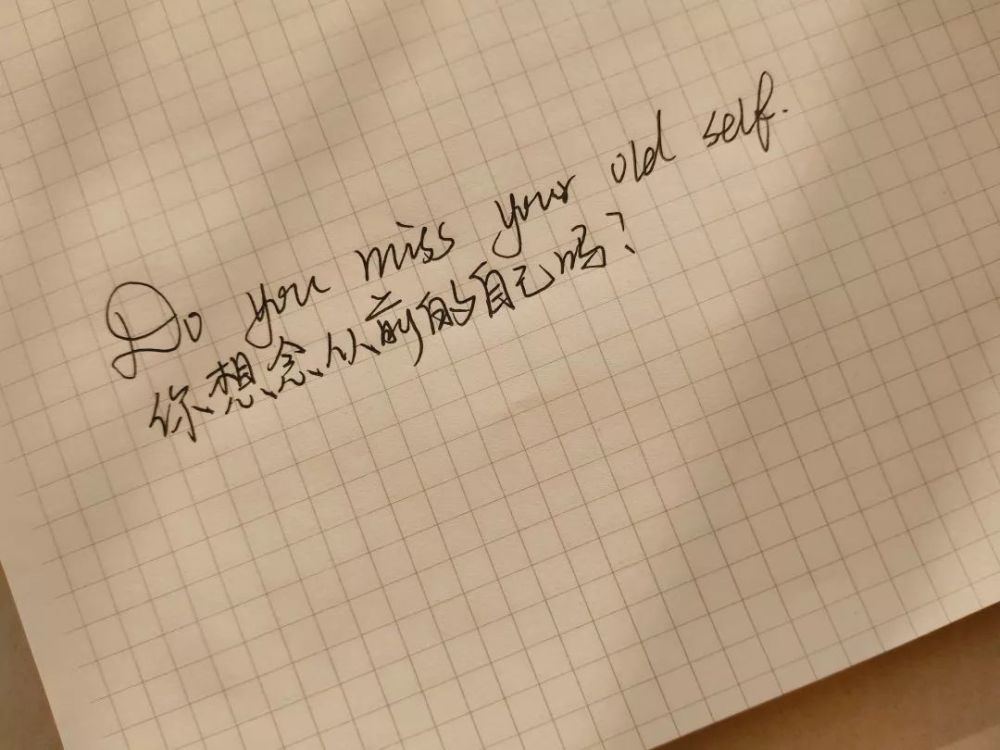 Do you miss your old self.
你想念从前的自己吗？